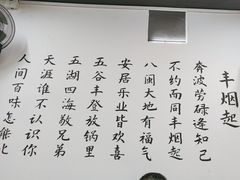 丰烟起
奔波劳碌逢知己
不约而同丰烟起
八闽大地有福气
安居乐业皆欢喜
五谷丰登放纳里
五湖四海敬兄弟
天涯谁不认识你
人间百味怎能比